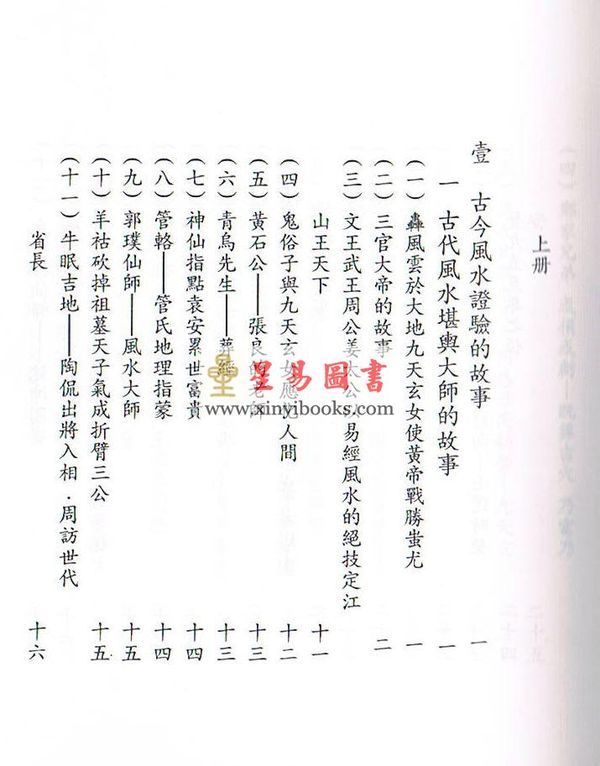 上册
壹 古今風水證驗的故事 一
一 古代風水堪輿大師的故事 一
(一)轟風雲於大地九天玄女使黃帝戰勝蚩尤 一
(二)三官大帝的故事 二
(三)文王武王周公姜太公易經風水的絕技定江
山王天下 十一
(四)鬼俗子與九天玄女應人間 十二
(五)黃石公——張良的老師 十三
(六)青烏先生——葬經 十三
(七)神仙指點袁安累世富貴 十四
(八)管輅——管氏地理指蒙 十四
(九)郭璞仙師——風水大師 十五
(十)羊祜砍掉祖墓天子氣成折臂三公 十五
(十一)牛眠吉地——陶侃出將入相．周訪世代
省長 十六
星易圖書
www.xinyibooks.com